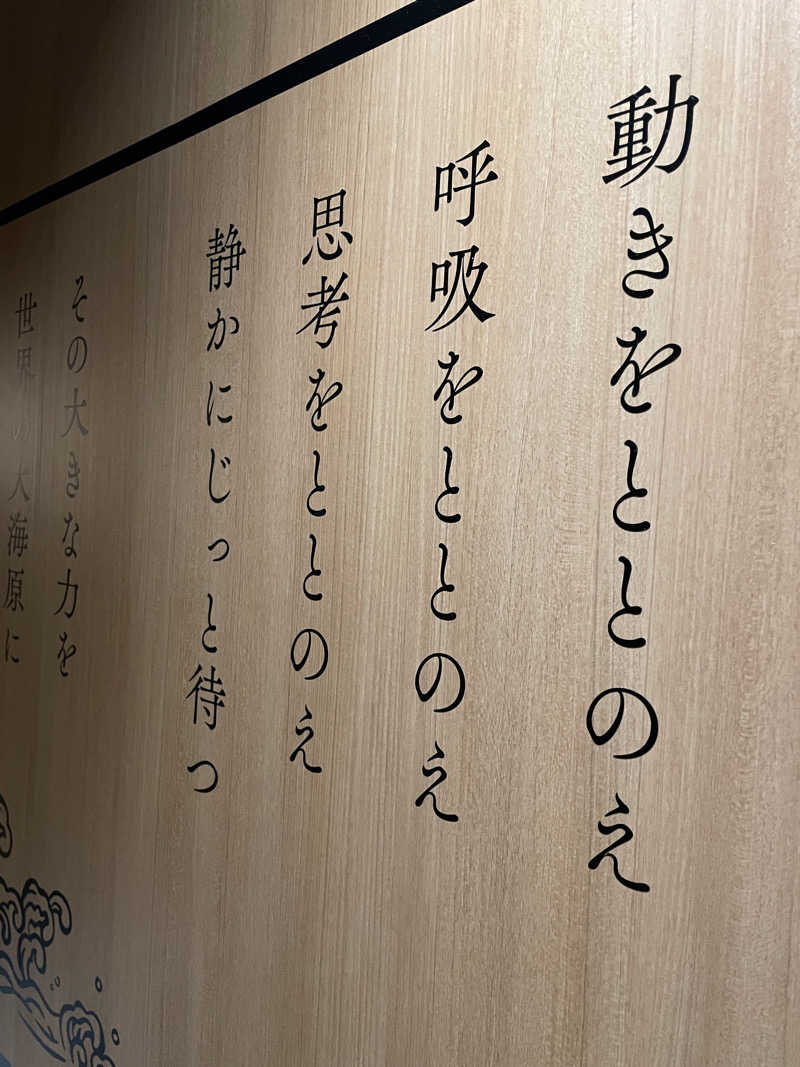 動きをととのえ
呼吸をととのえ
思考をととのえ
静かにじっと待つ
その大きな力を
世界の大海原に